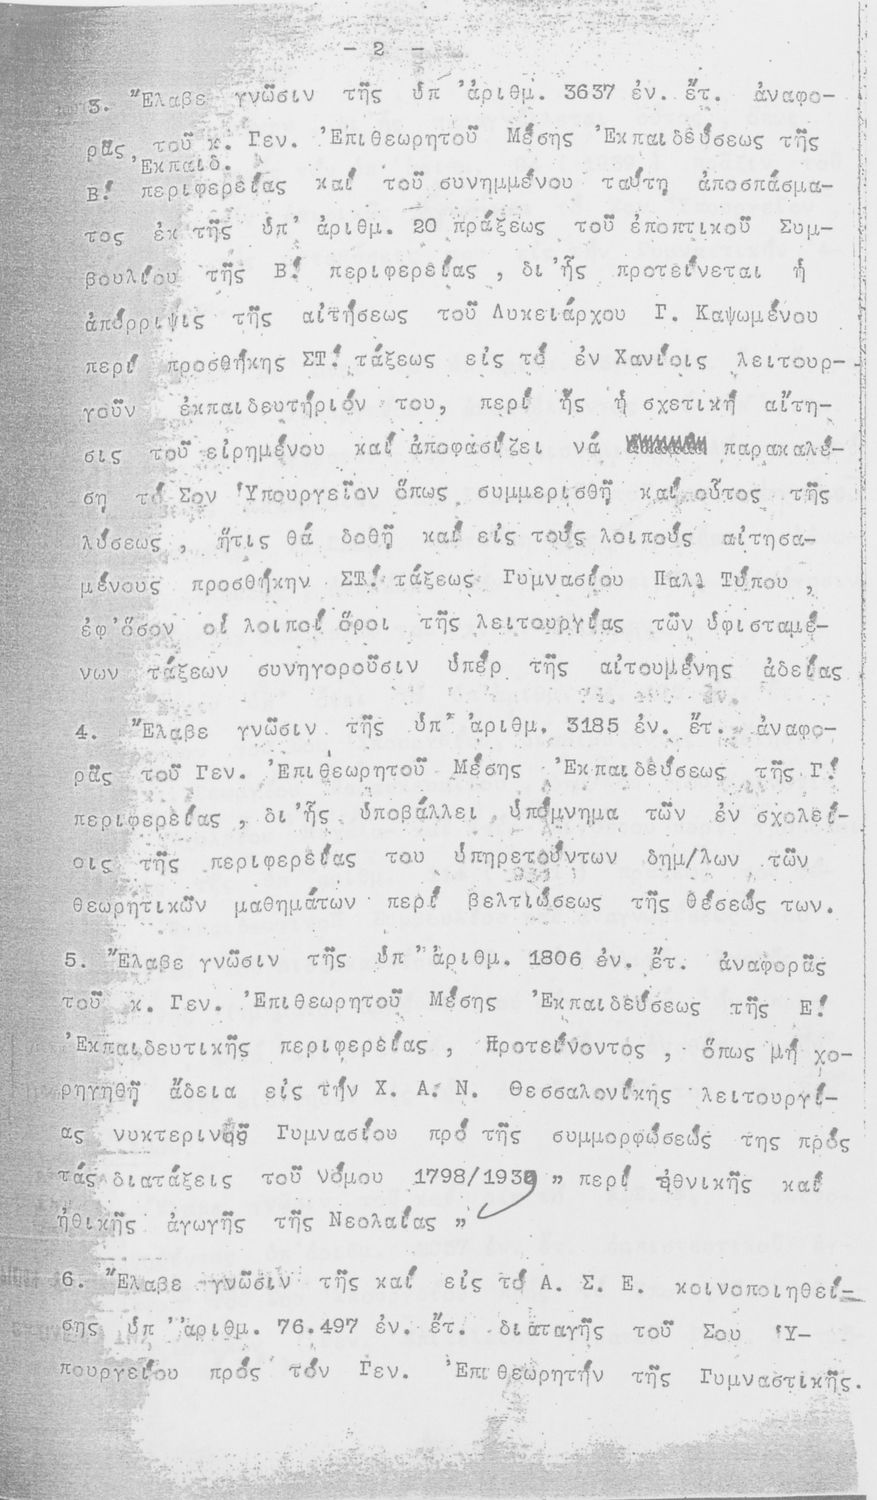 - 2 -
3. Ἔλαβε γνῶσιν τῆς ὑπ' ἀριθμ. 3637 ἐν. ἔτ. ἀναφο-
ρᾶς τοῦ κ. Γεν. Ἐπιθεωρητοῦ Μέσης Ἐκπαιδεύσεως τῆς
Ἐκπαιδ.
Β΄ περιφερείας καί τοῦ συνημμένου ταύτῃ ἀποσπάσμα-
τος ἐκ τῆς ὑπ' ἀριθμ. 20 πράξεως τοῦ ἐποπτικοῦ Συμ-
βουλίου τῆς Β΄ περιφερείας, δι' ἧς προτείνεται ἡ
ἀπόρριψις τῆς αἰτήσεως τοῦ Λυκειάρχου Γ. Καψωμένου
περί προσθήκης ΣΤ΄ τάξεως εἰς τό ἐν Χανίοις λειτουρ-
γοῦν ἐκπαιδευτήριόν του, περί ἧς ἡ σχετική αἴτη-
σις τοῦ εἰρημένου καί ἀποφασίζει νά παρακαλέ-
ση τό Σον Ὑπουργεῖον ὅπως συμμερισθῇ καί οὗτος τῆς
λύσεως, ἥτις θά δοθῇ καί εἰς τούς λοιπούς αἰτησα-
μένους προσθήκην ΣΤ΄ τάξεως Γυμνασίου Παλ. Τύπου,
ἐφ' ὅσον οἱ λοιποί ὅροι τῆς λειτουργίας τῶν ὑφισταμέ-
νων τάξεων συνηγοροῦσιν ὑπέρ τῆς αἰτουμένης ἀδείας
4. Ἔλαβε γνῶσιν τῆς ὑπ' ἀριθμ. 3185 ἐν. ἔτ. ἀναφο-
ρᾶς τοῦ Γεν. Ἐπιθεωρητοῦ Μέσης Ἐκπαιδεύσεως τῆς Γ΄
περιφερείας, δι' ἧς ὑποβάλλει ὑπόμνημα τῶν ἐν σχολεί-
οις τῆς περιφερείας του ὑπηρετούντων δημ/λων τῶν
θεωρητικῶν μαθημάτων περί βελτιώσεως τῆς θέσεώς των.
5. Ἔλαβε γνῶσιν τῆς ὑπ' ἀριθμ. 1806 ἐν. ἔτ. ἀναφορᾶς
τοῦ κ. Γεν. Ἐπιθεωρητοῦ Μέσης Ἐκπαιδεύσεως τῆς Ε΄
Ἐκπαιδευτικῆς περιφερείας, προτείνοντος, ὅπως μή χο-
ρηγηθῇ ἄδεια εἰς τήν Χ. Α. Ν. Θεσσαλονίκης λειτουργί-
ας νυκτερινοῦ Γυμνασίου πρό τῆς συμμορφώσεώς της πρός
τάς διατάξεις τοῦ νόμου 1798/1939 „ περί ἐθνικῆς καί
ἠθικῆς ἀγωγῆς τῆς Νεολαίας „
6. Ἔλαβε γνῶσιν τῆς καί εἰς τό Α. Σ. Ε. κοινοποιηθεί-
σης ὑπ' ἀριθμ. 76.497 ἐν. ἔτ. διαταγῆς τοῦ Σου Ὑ-
πουργείου πρός τόν Γεν. Ἐπιθεωρητήν τῆς Γυμναστικῆς.